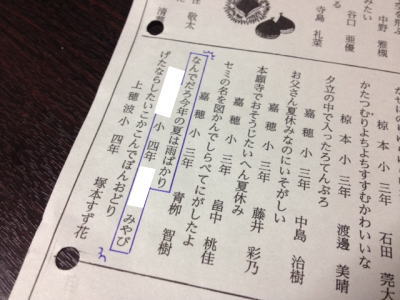 中野 雅楓
みたい
谷口 亜優
寺島 礼菜
敬太
椋本小 三年 石田 莞太
かたつむりよちよちすすむかわいいな
椋本小 三年 渡邊 美晴
夕立の中で入ったろてんぶろ
嘉穂小 三年 中島 治樹
お父さん夏休みなのにいそがしい
嘉穂小 三年 藤井 彩乃
本願寺でおそうじたいへん夏休み
嘉穂小 三年 畠中 桃佳
セミの名を図かんでしらべてにがしたよ
嘉穂小 三年 青柳 智樹
なんでだろ今年の夏は雨ばかり
小 四年 みやび
げたならしたいこかこんでぼんおどり
上穂波小 四年 塚本すず花